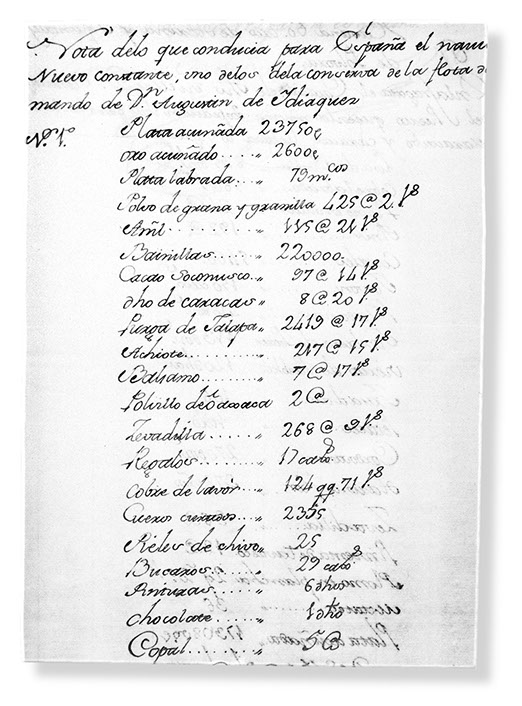 Nota delo que conducia para España el navio
Nuevo constante, uno delos dela conserva de la flota d
mando de Dn Augustin de Idiaquez
No. 1o.
Plata acuñada 23750
oro acuñado .... „ 2600
Plata labrada .. „ 79 m.cos
Polvo de grana y granilla 425 @ 2 ls
Añil ........ „ 115 @ 21 ls
Bainillas ..... „ 220000.
Cacao Soconusco .. „ 97 @ 14 ls
dho de caracas „ 8 @ 20 ls
Purga de Jalapa „ 2419 @ 17 ls
Achiote ...... „ 217 @ 15 ls
Balsamo ..... „ 7 @ 17 ls
Polvillo de Oaxaca 2 @
Zevadilla ...... „ 268 @ 9 ls
Regalos ....... „ 17 caxos
Cobre de lavòr .. „ 124 qq. 71 ls
Cueros curtidos ... „ 2355
Pieles de chivo „ 25
Bucaros ....... „ 29 caxs
Pinturas ...... „ 6 dhos
chocolate ..... „ 1 dho
Copal ....... „ 5